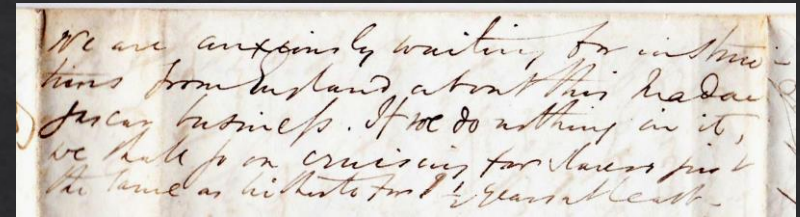 We are anxiously waiting for instruc-
tions from England about this Madag
gascar business. If we do nothing in it,
we shall go on cruising for slavers just
the same as hitherto for 1 1/2 years at least-